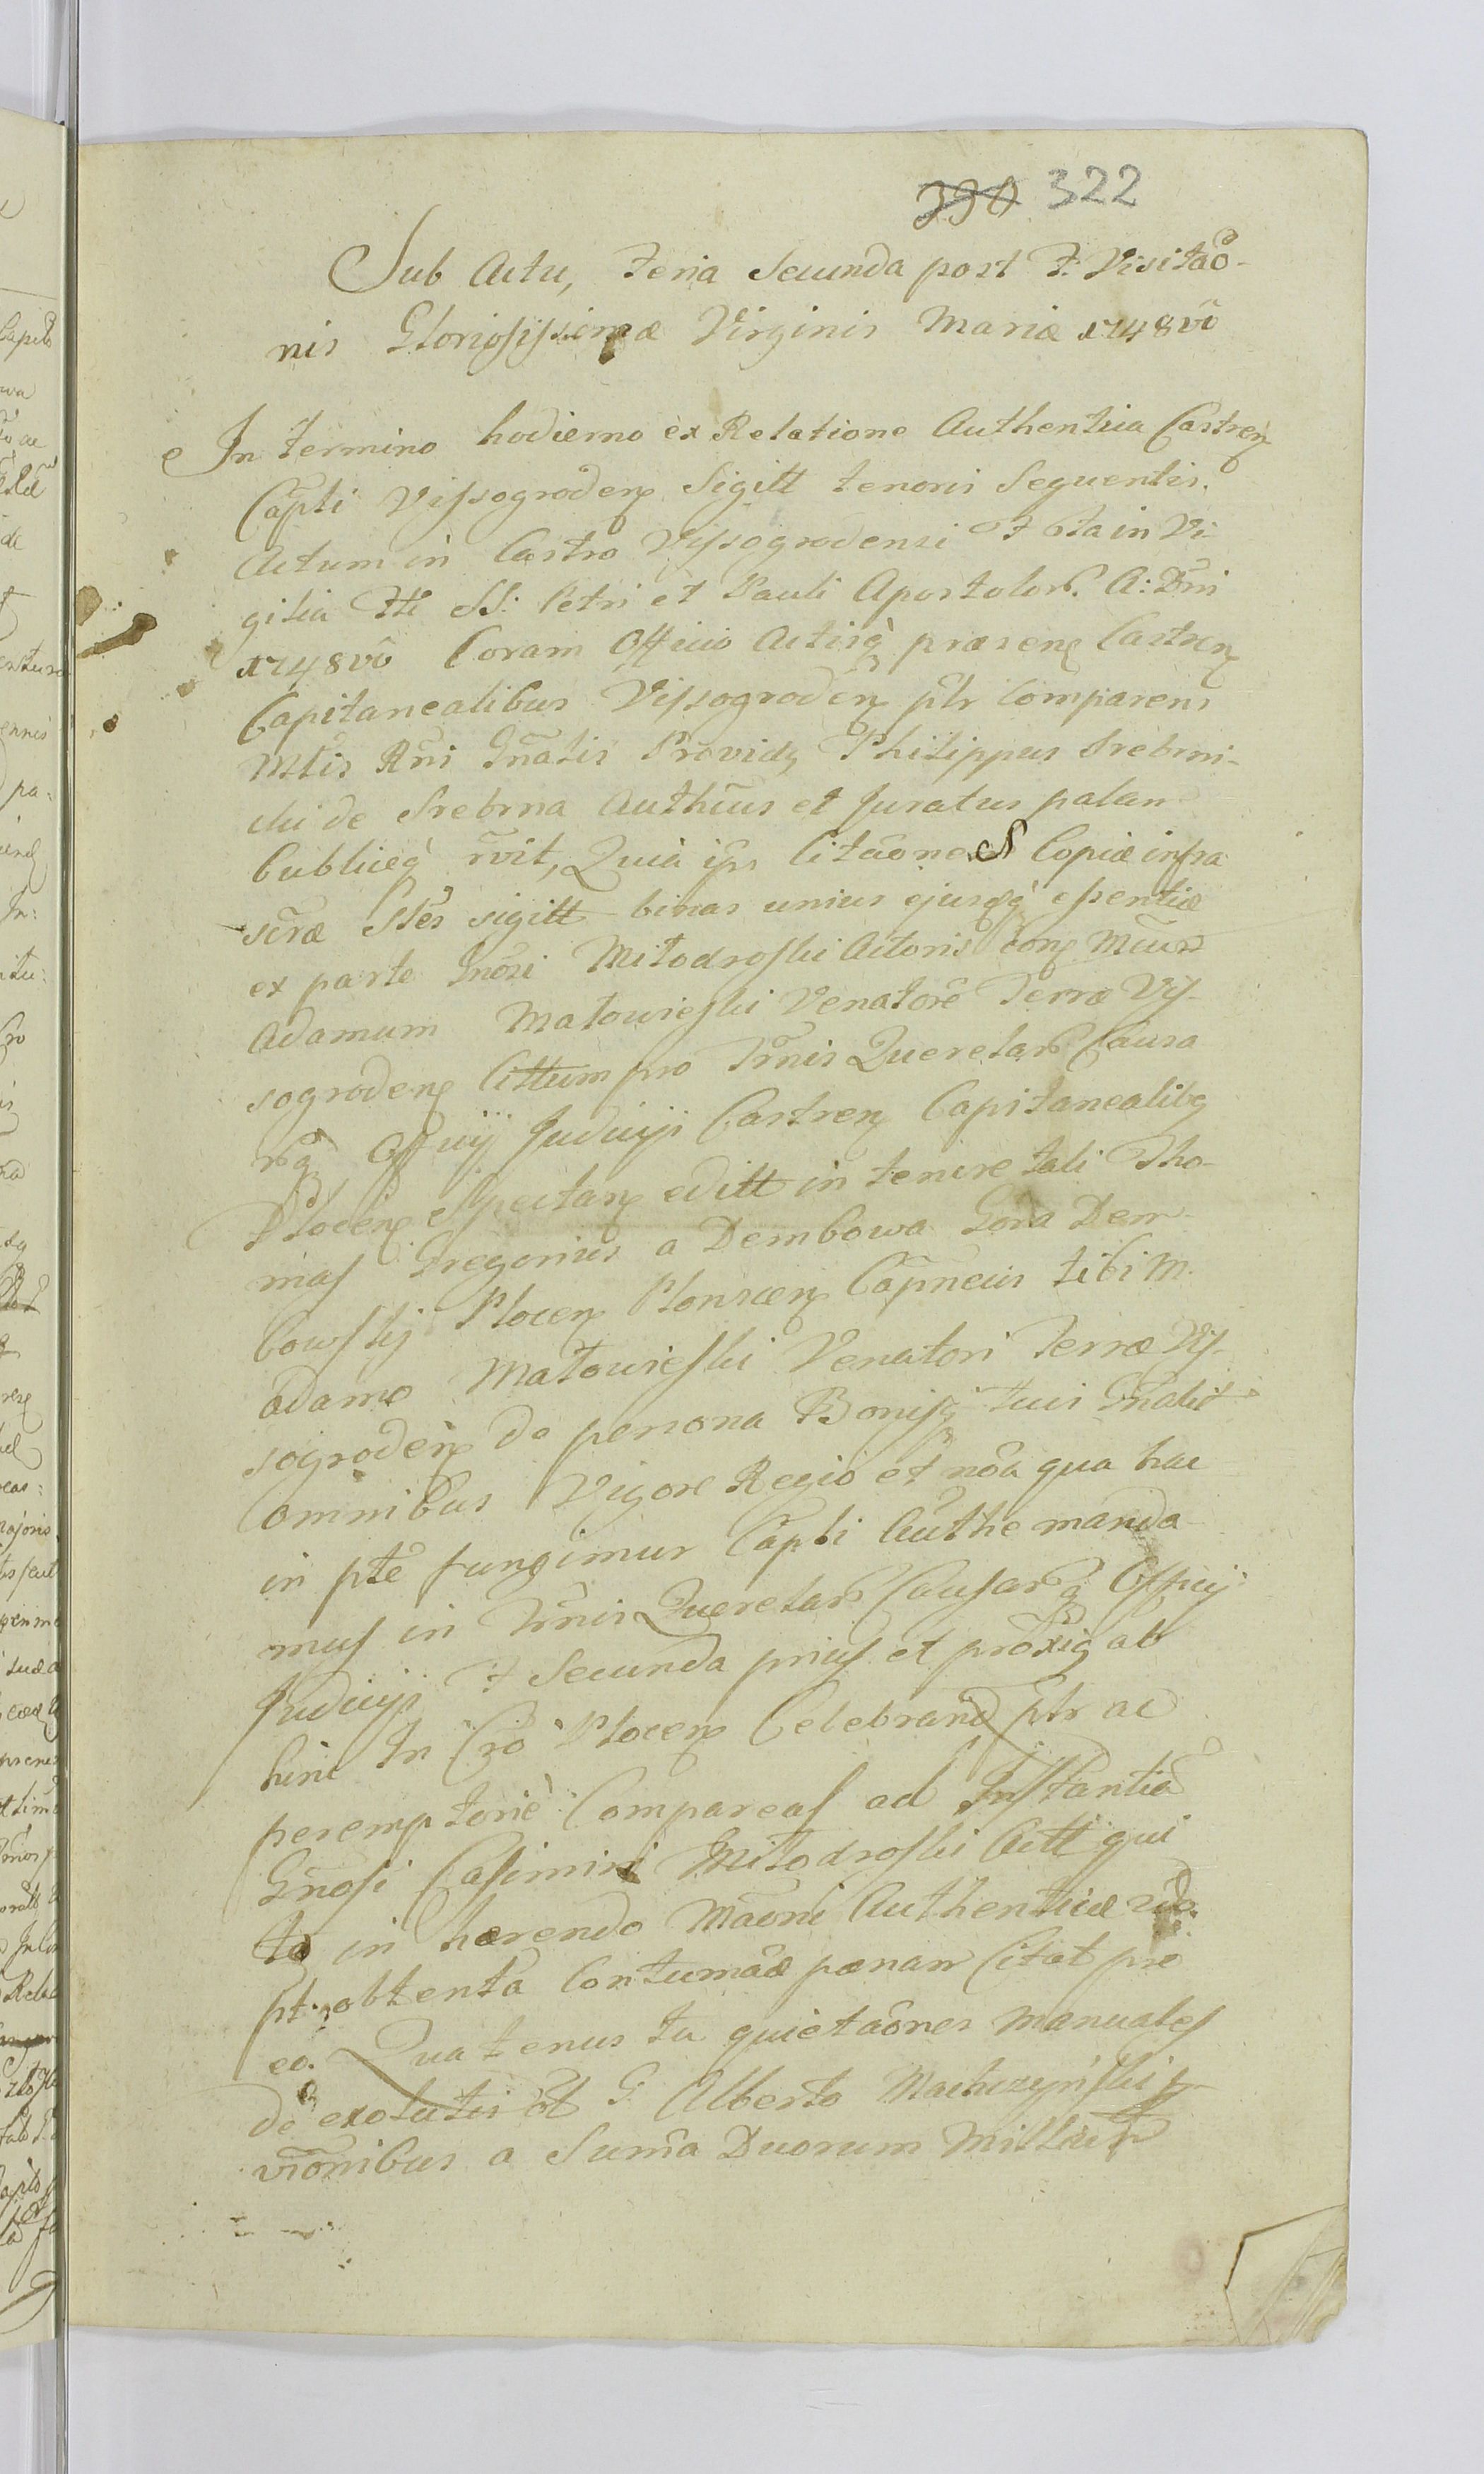 390 322
Sub Actu, Feria Secunda post F. Visitaõ-
nis Gloriosissimæ Virginis Mariæ 1748vo
In termino hodierno ex Relatione Authentica Castren
Capti Vissogroden Sigitt tenoris Sequentis.
Actum in Castro Vissogrodensi F 6ta in Vi-
gilia Fti SS: Petri et Pauli Apostolor. A: Dni
1748vo Coram Officio Actisq præsen Castren
Capitanealibus Vissogroden plr Comparens
Mtlis Rni Gnãlis Providg Philippus Srebrni-
cki de Srebrna Authcus et Juratus palam
Publiceq rvit, Quia ips Citaõnes Copiæ infra
scræ Stês sigitt binas unius ejusdq essentiæ
ex parte Gnosi Mitodroski Actoris con Mcum
Adamum Malowieski Venatore Terræ Vis-
sogroden Cittum pro Trnis Querelar Causa
rq Officij Judicÿ Castren Capitanealibg
Plocen Spectan editt in tenore tali Tho-
mas Gregorius a Dembowa Gora Dem-
bowskj Plocen Plonscen Capneus tibi M.
Adamo Małowieski Venatori Terræ Vis-
sogroden de persona Bonisq tuis Gnalit
omnibus Vigore Regio et nõa qua hac
in pte fungimur Capti Authe manda-
mus in Trnis Querelar Causarq Officÿ
Judicÿ F Secunda prius et proxig ab
hinc In Cro Plocen Celebrand plr ac
peremptorie Compareas ad Instantiã
Gnosi Casimiri Mitodroski Att qui
te in hærendo Maõni Authenticæ
pt. obtenta Contumaæ pænam Citat pro
eo. Quatenus tu quietaõnes manuales
de exolutis G Alberto Machczyński
võnibus a Suma Duorum Millium